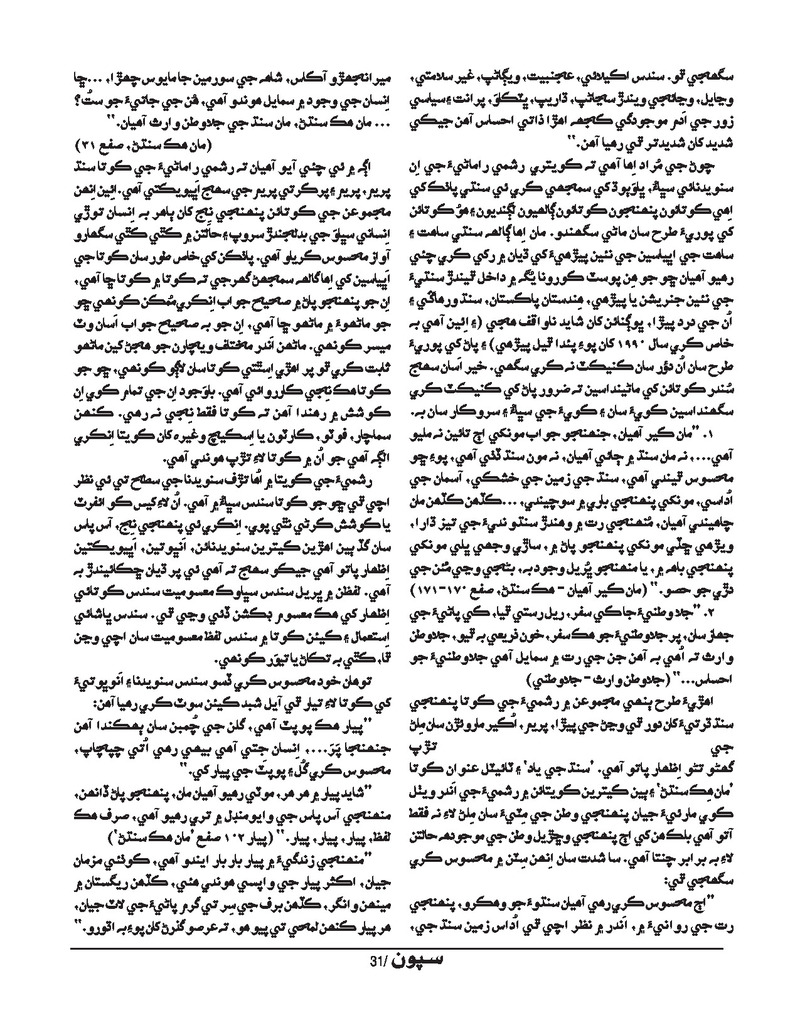 سگهجي ٿو. سندس اڪيلائي، عجنبيت، ويڳاڻپ، غير سلامتي،
وڃايل، وڃائجي ويندڙ سڃاڻپ، ڌاريپ، ڀٽڪاوَ، پرانت ۽ سياسي
زور جي اڌم موجودگي ڪجهه اهڙا ذاتي احساس آهن جيڪي
شديد کان شديدتر ٿي رهيا آهن."
چوڻ جي مُراد اِها آهي ته ڪويتري رشمي راماڻيءَ جي اِن
سنويدنائي سڀاءُ، ڀاوَ ٻوڌ کي سمجهي ڪري ئي سنڌي پاٺڪ کي
اِهي ڪوتائون پنهنجون ڪوتائون ڳالهيون لڳنديون ۽ هُو ڪوتائن
کي پوريءَ طرح سان ماڻي سگهندو. مان اِها ڳالهه سنڌي ساهت ۽
ساهت جي اڀياسين جي نئين پيڙهيءَ کي ڌيان ۾ رکي ڪري چئي
رهيو آهيان ڇو جو هِن پوسٽ ڪورونا يُگه ۾ داخل ٿيندڙ سنڌيءَ
جي نئين جنريشن يا پيڙهي، هِندستان پاڪستان، سنڌ ورهاڱي ۽
اُن جي درد پيڙا، ڀوڳنائن کان شايد ناواقف هجي (۽ اِئين آهي به
خاص ڪري سال ١٩٩٠ کان پوءِ پئدا ٿيل پيڙهي) ۽ پاڻ کي پوريءَ
طرح سان اُن دؤر سان ڪنيڪٽ نه ڪري سگهي. خير اَسان سهج
سُندر ڪوتائن کي ماڻينداسين ته ضرور پاڻ کي ڪنيڪٽ ڪري
سگهنداسين ڪويءَ سان ۽ ڪويءَ جي سڀاءُ ۽ سروڪار سان به.
١. "مان ڪير آهيان، جنهنجو جواب مونکي اڄ تائين نه مليو
آهي...، نه مان سنڌ ۾ ڄائي آهيان، نه مون سنڌ ڏٺي آهي، پوءِ ڇو
محسوس ٿيندي آهي، سنڌ جي زمين جي خشڪي، آسمان جي
اُداسي، مونکي پنهنجي باري ۾ سوچيندي، ...ڪڏهن ڪڏهن مان
چاهيندي آهيان، مُنهنجي رت ۾ وهندڙ سنڌو نديءَ جي تيز ڌارا،
ويڙهي ڇڏي مونکي پنهنجو پاڻ ۾، ساڙي وجهي ڀلي مونکي
پنهنجي باهه ۾، يا منهنجو ڀُريل وجود به، بڻجي وڃي مُئن جي
دڙي جو حصو." (مان ڪير آهيان - هڪ سنڌڻ، صفح ١٧٠-١٧١)
٢. "جلاوطنيءَ جا ڪي سفر، ريل رستي ٿيا، ڪي پاڻيءَ جي
جهاز سان، پر جلاوطنيءَ جو هڪ سفر، خون ذريعي به ٿيو، جلاوطن
وارث ته اُهي به آهن جن جي رت ۾ سمايل آهي جلاوطنيءَ جو
احساس..." (جلاوطن وارث - جلاوطني)
اهڙيءَ طرح ٻنهي مجموعن ۾ رشميءَ جي ڪوتا پنهنجي
سنڌ ڌرتيءَ کان دور ٿي وڃڻ جي پيڙا، پريم، اُڪير ماروئڙن سان مِلڻ
جي تڙپ
گهڻو تڻو اِظهار پاتو آهي. 'سنڌ جي ياد' ۽ ٽائيٽل عنوان ڪوتا
'مان هِڪ سنڌڻ' ۽ ٻين ڪيترين ڪويتائن ۾ رشميءَ جي اَندر ويٺل
ڪوي مارئيءَ جيان پنهنجي وطن جي مِٽيءَ سان مِلڻ لاءِ نه فقط
آتو آهي بلڪهن کي اڄ پنهنجي وڇڙيل وطن جي موجودهه حالتن
لاءِ به برابر چنتا آهي. سا شدت سان اِنهن سِٽن ۾ محسوس ڪري
سگهجي ٿي:
"اڄ محسوس ڪري رهي آهيان سنڌوءَ جو وهڪرو، پنهنجي
رت جي روانيءَ ۾، اَندر ۾ نظر اچي ٿي اُداس زمين سنڌ جي،
ميرانجهڙو آڪاس، شاهه جي سورمين جا مايوس چهڙا، ...ڇا
اِنسان جي وجود ۾ سمايل هوندو آهي، هُن جي جاتيءَ جو ست؟
... مان هڪ سنڌڻ، مان سنڌ جي جلاوطن وارث آهيان."
(مان هڪ سنڌڻ، صفح ٣١)
اڳه ۾ ئي چئي آيو آهيان ته رشمي راماڻيءَ جي ڪوتا سنڌ
پريم، پريم ۽ پرڪرتي پريم جي سهج اَڀيويڪتي آهي. ائين اِنهن
مجموعن جي ڪوتائن پنهنجي نِج کان ٻاهر به اِنسان توڙي
اِنساني سڀاوَ جي بدلجندڙ سروپ ۽ حالتن ۾ ڪٿي ڪٿي سگهارو
آواز محسوس ڪرايو آهي. پاٺڪن کي خاص طور سان ڪوتا جي
اَڀياسين کي اِها ڳالهه سمجهڻ گهرجي ته ڪوتا ۾ ڪوتا ڇا آهي،
اِن جو پنهنجو پاڻ ۾ صحيح جواب اِنڪري مُمڪن ڪونهي ڇو
جو ماڻهوءَ ۾ ماڻهو ڇا آهي، اِن جو به صحيح جواب اَسان وٽ
ميسر ڪونهي. ماڻهن اَندر مختلف ويچارن جو هجڻ کين ماڻهو
ثابت ڪري ٿو پر اهڙي اِسٿتي ڪوتا سان لاڳو ڪونهي، ڇو جو
ڪوتا هڪ نِجي ڪارروائي آهي. باوَجود اِن جي تمام ڪوي اِن
ڪوشش ۾ رهندا آهن ته ڪوتا فقط نِجي نه رهي. ڪنهن
سماچار، فوٽو، ڪارٽون يا اِسڪيچ وغيره کان ڪويتا اِنڪري
الڳ آهي جو اُن ۾ ڪوتا لاءِ تڙپ هوندي آهي.
رشميءَ جي ڪويتا ۾ اُها تڙف سنويدنا جي سطح تي ئي نظر
اچي ٿي ڇو جو ڪوتا سندس سڀاءُ ۾ آهي. اُن لاءِ کيس ڪو ائفرٽ
يا ڪوشش ڪرڻي نٿي پوي. اِنڪري ئي پنهنجي نِج، آس پاس
سان گڏ ٻين اهڙين ڪيترين سنويدنائن، اَنڀوتين، اَڀيويڪتين
اِظهار پاتو آهي جيڪو سهج ته آهي ئي پر ڌيان ڇڪائيندڙ به
آهي. لفظن ۾ ڀريل سندس سڀاوِڪ معصوميت سندس ڪوتائي
اِظهار کي هڪ معسوم ڊِڪشن ڏئي وڃي ٿي. سندس ڀاشائي
اِستعمال ۽ ڪيئن ڪوتا ۾ سندس لفظ معصوميت سان اچي وڃن
ٿا، ڪٿي به تڪاڻ يا تيوَر ڪونهي.
توهان خود محسوس ڪري ڏسو سندس سنويدنا ۽ اَنوڀوتيءَ
کي ڪوتا لاءِ تيار ٿي آيل شبد ڪيئن سوٽ ڪري رهيا آهن:
"پيار هڪ پوپٽ آهي، گلن جي چُمبن سان ٻهڪندا آهن
جنهنجا پَرَ...، اِنسان جتي آهي بيهي رهي اُتي چپچاپ،
محسوس ڪري گُل ۽ پوپٽ جي پيار کي."
"شايد پيار ۾ هر هر، موٽي رهيو آهيان مان، پنهنجو پاڻ ڏانهن،
منهنجي آس پاس جي وايومنڊل ۾ تري رهيو آهي، صرف هڪ
لفظ، پيار، پيار، پيار." (پيار ١٠٢ صفح 'مان هڪ سنڌڻ')
"منهنجي زندگيءَ ۾ پيار بار بار ايندو آهي، ڪوئني مزمان
جيان، اڪثر پيار جي واپسي هوندي هئي، ڪڏهن ريگستان ۾
مينهن وانگر، ڪڏهن برف جي سِر تي گرم پاڻيءَ جي لاٽ جيان،
هر پيار ڪنهن لمحي تي پيو هو، ته عرصو گذرڻ کان پوءِ به اڌورو."
سپون /31